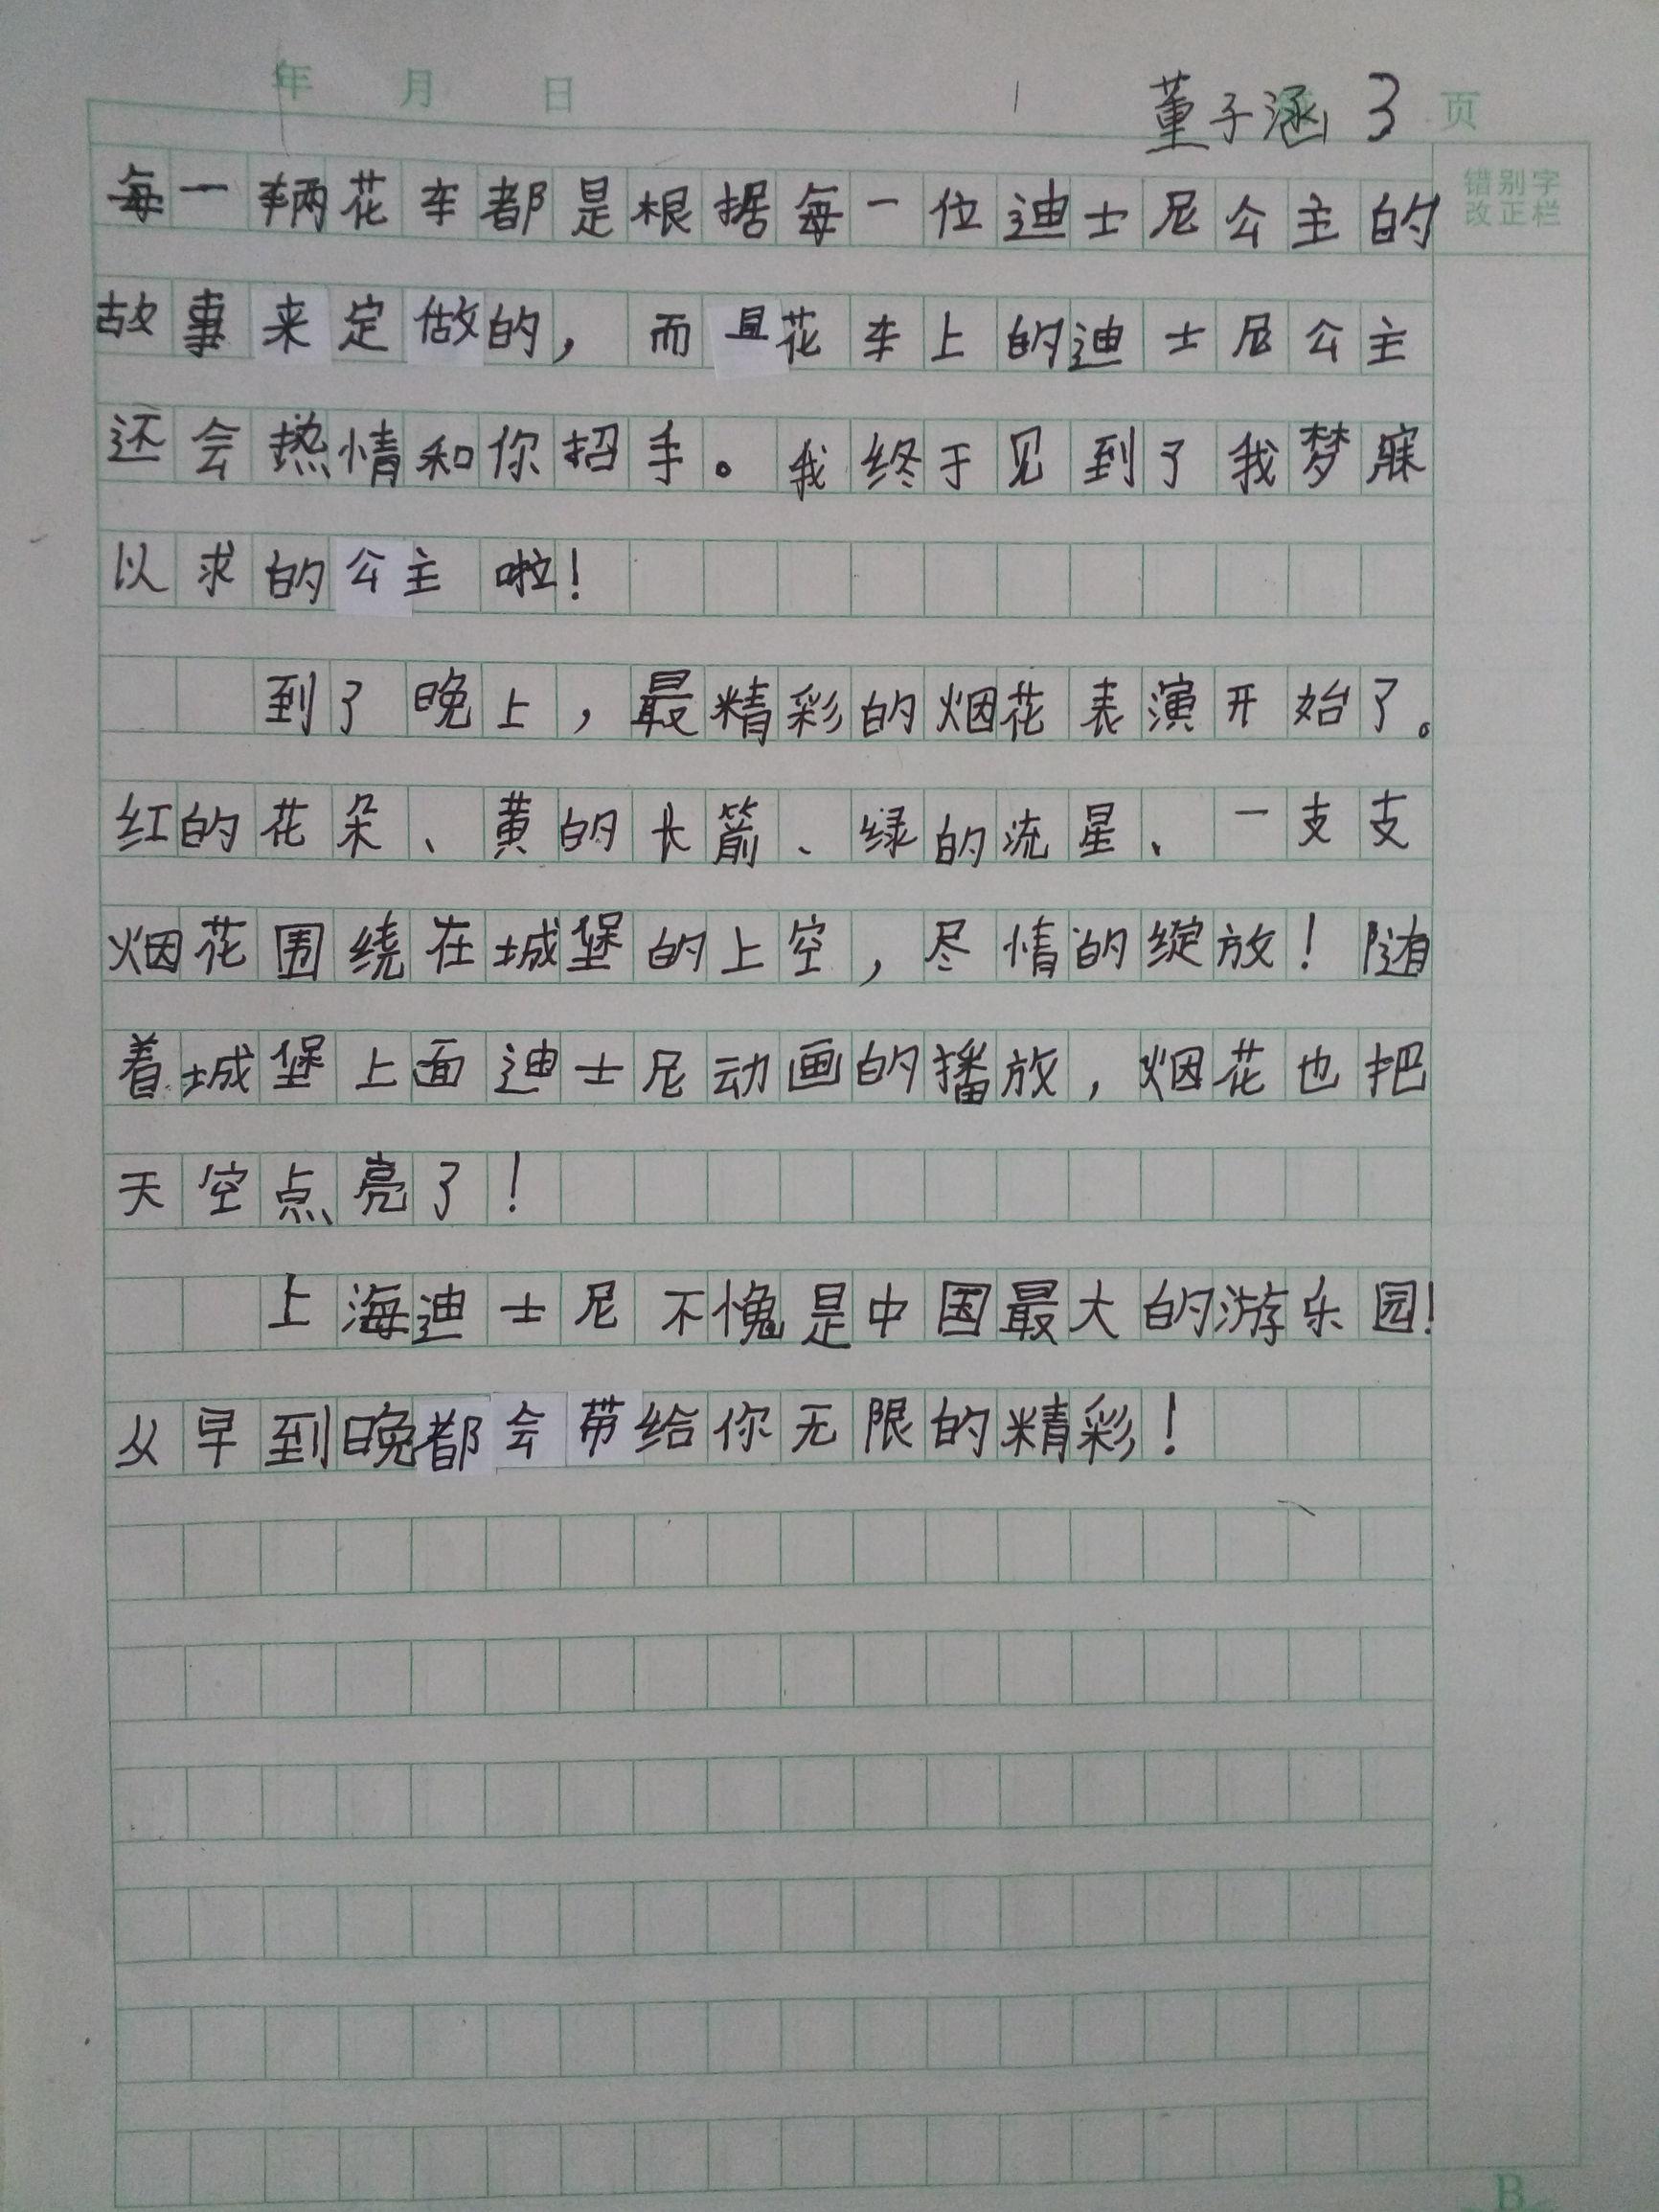 年 月 日 董子涵 3 页
错别字
改正栏
每一辆花车都是根据每一位迪士尼公主的
故事来定做的，而且花车上的迪士尼公主
还会热情和你招手。我终于见到了我梦寐
以求的公主啦！
到了晚上，最精彩的烟花表演开始了。
红的花朵、黄的长箭、绿的流星、一支支
烟花围绕在城堡的上空，尽情的绽放！随
着城堡上面迪士尼动画的播放，烟花也把
天空点亮了！
上海迪士尼不愧是中国最大的游乐园！
从早到晚都会带给你无限的精彩！
B